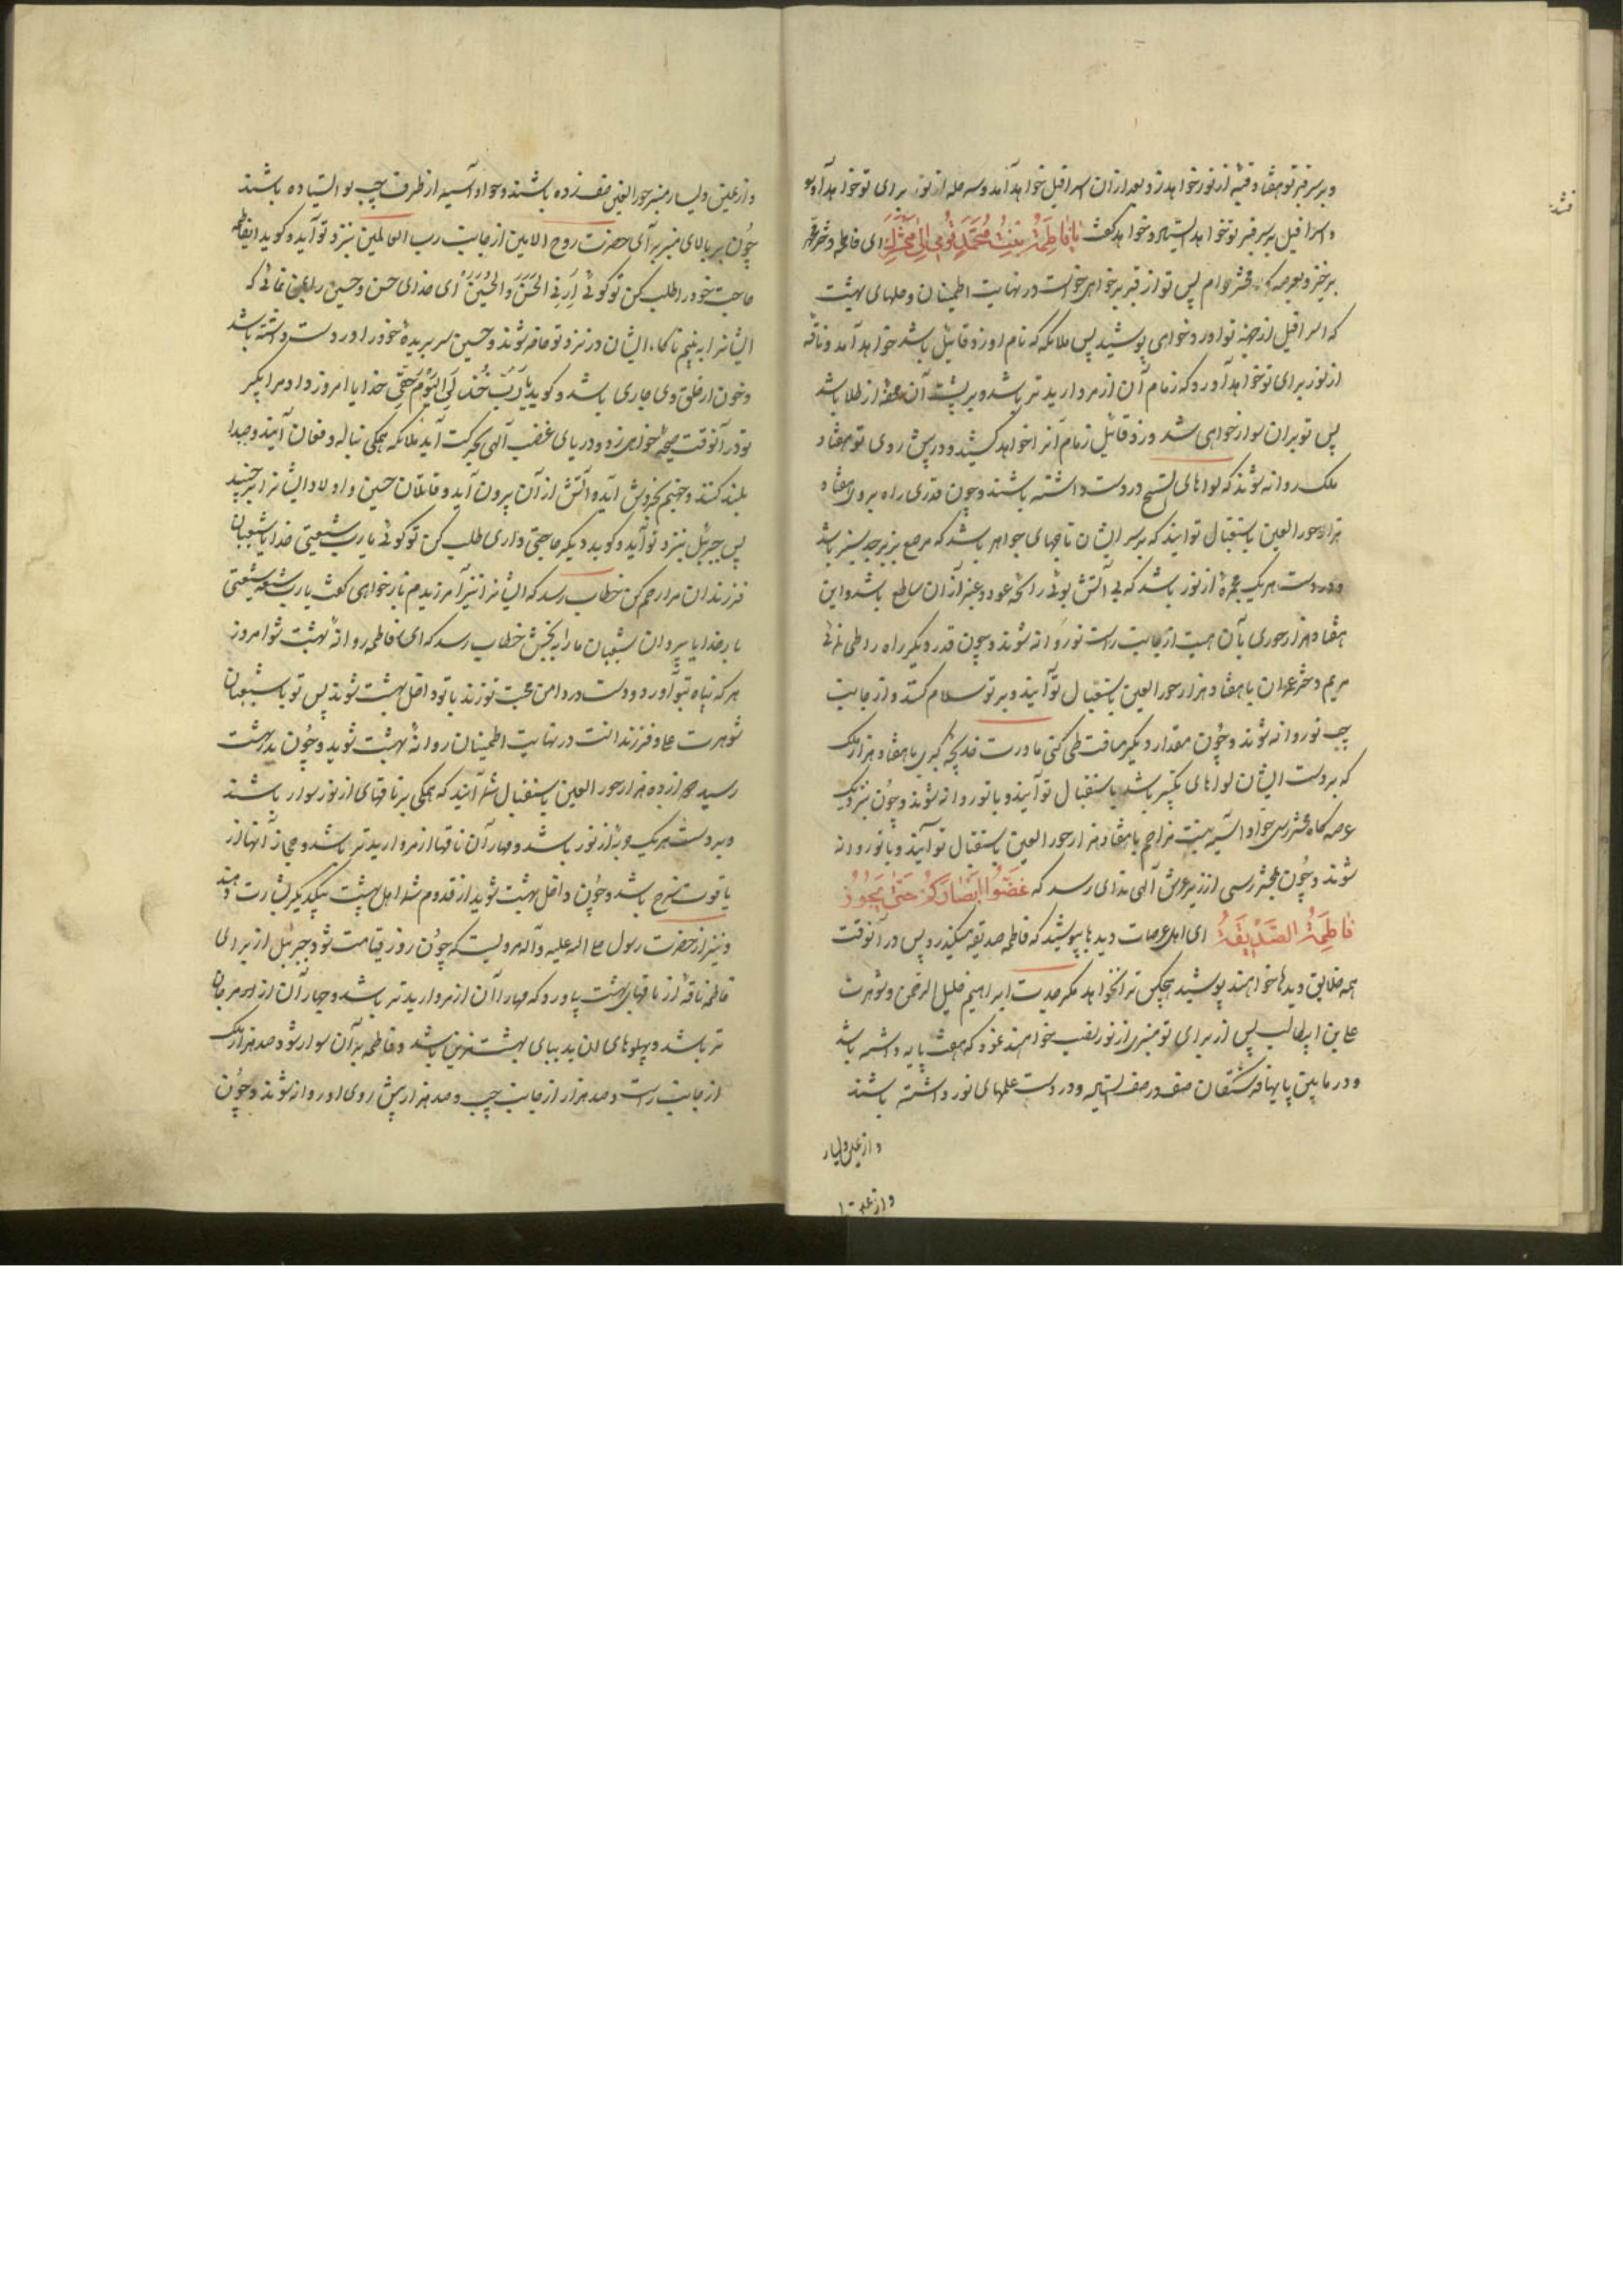 و بر سر قبر تو هفتاد قبه از نور خواهد زد و بعد از ان اسرافیل خواهد آمد و سه حله از نور برای تو خواهد آورد
و اسرافیل بر سر قبر تو خواهد ایستاد و خواهد کفت یا فاطِمَةُ بِنتُ مُحَمَّدٍ قُومِی اِلی مَحْشَرِكِ ای فاطمه دختر محمد
برخیز و بعرصه محشر خرام پس تو از قبر برخواهی خواست در نهایت اطمینان و حلهای بهشت
که اسرافیل از جهة تو اورد خواهی پوشید پس ملائکه که نام او زوقائیل باشد خواهد آمد و ناقه
از نور برای تو خواهد آورد که زمام آن از مروارید تر باشد و بر پشت آن محفه از طلا باشد
پس تو بران سوار خواهی شد و زوقائیل زمام آنرا خواهد کشید و در پیش روی تو هفتاد
ملک روانه شوند که لواهای تسبیح در دست داشته باشند و چون قدری راه بروی هفتاد
هزار حور العین باستقبال تو ایند که بر سر ایشان تاجهای جواهر باشد که مرصع بزبرجد سبز باشد
و در دست هریک مجمره از نور باشد که بی آتش بوئی رائحه عود و عنبر از ان ساطع باشد و این
هفتاد هزار حوری بآن هیبت از جانب راست تو روانه شوند و چون قدر دیکر راه را طی نمائی
مریم دختر عمران با هفتاد هزار حور العین باستقبال تو آیند و بر تو سلام کنند و از جانب
چپ تو روانه شوند و چون مقدار دیکر مسافت طی کنی مادرت خدیجه کبری با هفتاد هزار ملک
که بر دست ایشان لواهای تکبیر باشد باستقبال تو آیند و با تو روانه شوند و چون بنزدیک
عرصه کاه محشر رسی حوا و آسیه بنت مزاحم با هفتاد هزار حور العین باستقبال تو آیند و با تو روانه
شوند و چون بمحشر رسی از زیر عرش آلهی ندای رسد که غَضُّوا اَبْصارَكُمْ حَتّی یَجُوزُ
فاطِمَةُ الصِّدِّیقَةُ ای اهل عرصات دیدها بپوشید که فاطمه صدیقه میکذرد پس در آنوقت
همه خلایق دیدها خواهند پوشید هیچکس ترا نخواهد مکر جدت ابراهیم خلیل الرحمن و شوهرت
علی بن ابیطالب پس از برای تو منبری از نور نصب خواهند نمود که هفت پایه داشته باشد
و در مابین پایها فرشتکان صف در صف ایستاده و در دست علمهای نور داشته باشند
و از یمین و یسار
و از یمین و یسار منبر حور العین صف زده باشند و حوا و آسیه از طرف چپ تو ایستاده باشند
چون بر بالای منبر بر آی حضرت روح الامین از جانب رب العالمین بنزد تو آید و کوید ایفاطمه
حاجت خود را طلب کن تو کوئی اَرِنِی الحَسَنَ وَالحُسَیْنَ ای خدای حسن و حسین را بمن نمائی که
ایشانرا به بینم ناکاه ایشان در نزد تو حاضر شوند و حسین سر بریده خود را در دست داشته باشد
و خون از حلق وی جاری باشد و کوید یا رَبِّ خُذ لِیَ الیَوْمَ حَقّی خدایا امروز داد مرا بکیر
تو در آنوقت صیحه خواهی زد و دریای غضب آلهی بحرکت آید ملائکه همکی بناله و فغان آیند و صدا
بلند کنند و جهنم بخروش آید و آتش از آن بیرون آید و قاتلان حسین و اولاد ایشانرا برچیند
پس جبرئیل بنزد تو آید و کوید دیکر حاجتی داری طلب کن تو کوئی یا رب شیعتی خدایا شیعیان
فرزندان مرا رحم کن خطاب رسد که ایشانرا نیز آمرزیدم باز خواهی کفت یا رب شیعة شیعتی
بار خدایا پیروان شیعیان ما را به بخش خطاب رسد که ای فاطمه روانه بهشت شو امروز
هر که پناه بتو آورد و دست در دامن محبت تو زند با تو داخل بهشت شوند پس تو با شیعیان
شوهرت علی و فرزندانت در نهایت اطمینان روانه بهشت شوید و چون بدر بهشت
رسید دوازده هزار حور العین باستقبال شما آیند که همکی بر ناقهای از نور سوار باشند
و بر دست هریک حربه از نور باشد و مهار آن ناقها از مروارید تر باشد و جهاز آنها از
یاقوت سرخ باشد و چون داخل بهشت شوید از قدوم شما اهل بهشت بیکدیکر بشارت دهند
و نیز از حضرت رسول صلی الله علیه و آله مرویست که چون روز قیامت شود جبرئیل از برای
فاطمه ناقه از ناقهای بهشت بیاورد که مهار آن از مروارید تر باشد و جهاز آن از مرجان
تر باشد و پهلوهای ان بدیبای بهشت مزین باشد و فاطمه بر آن سوار شود صد هزار ملک
از جانب راست و صد هزار از جانب چپ و صد هزار پیش روی او روانه شوند و چون